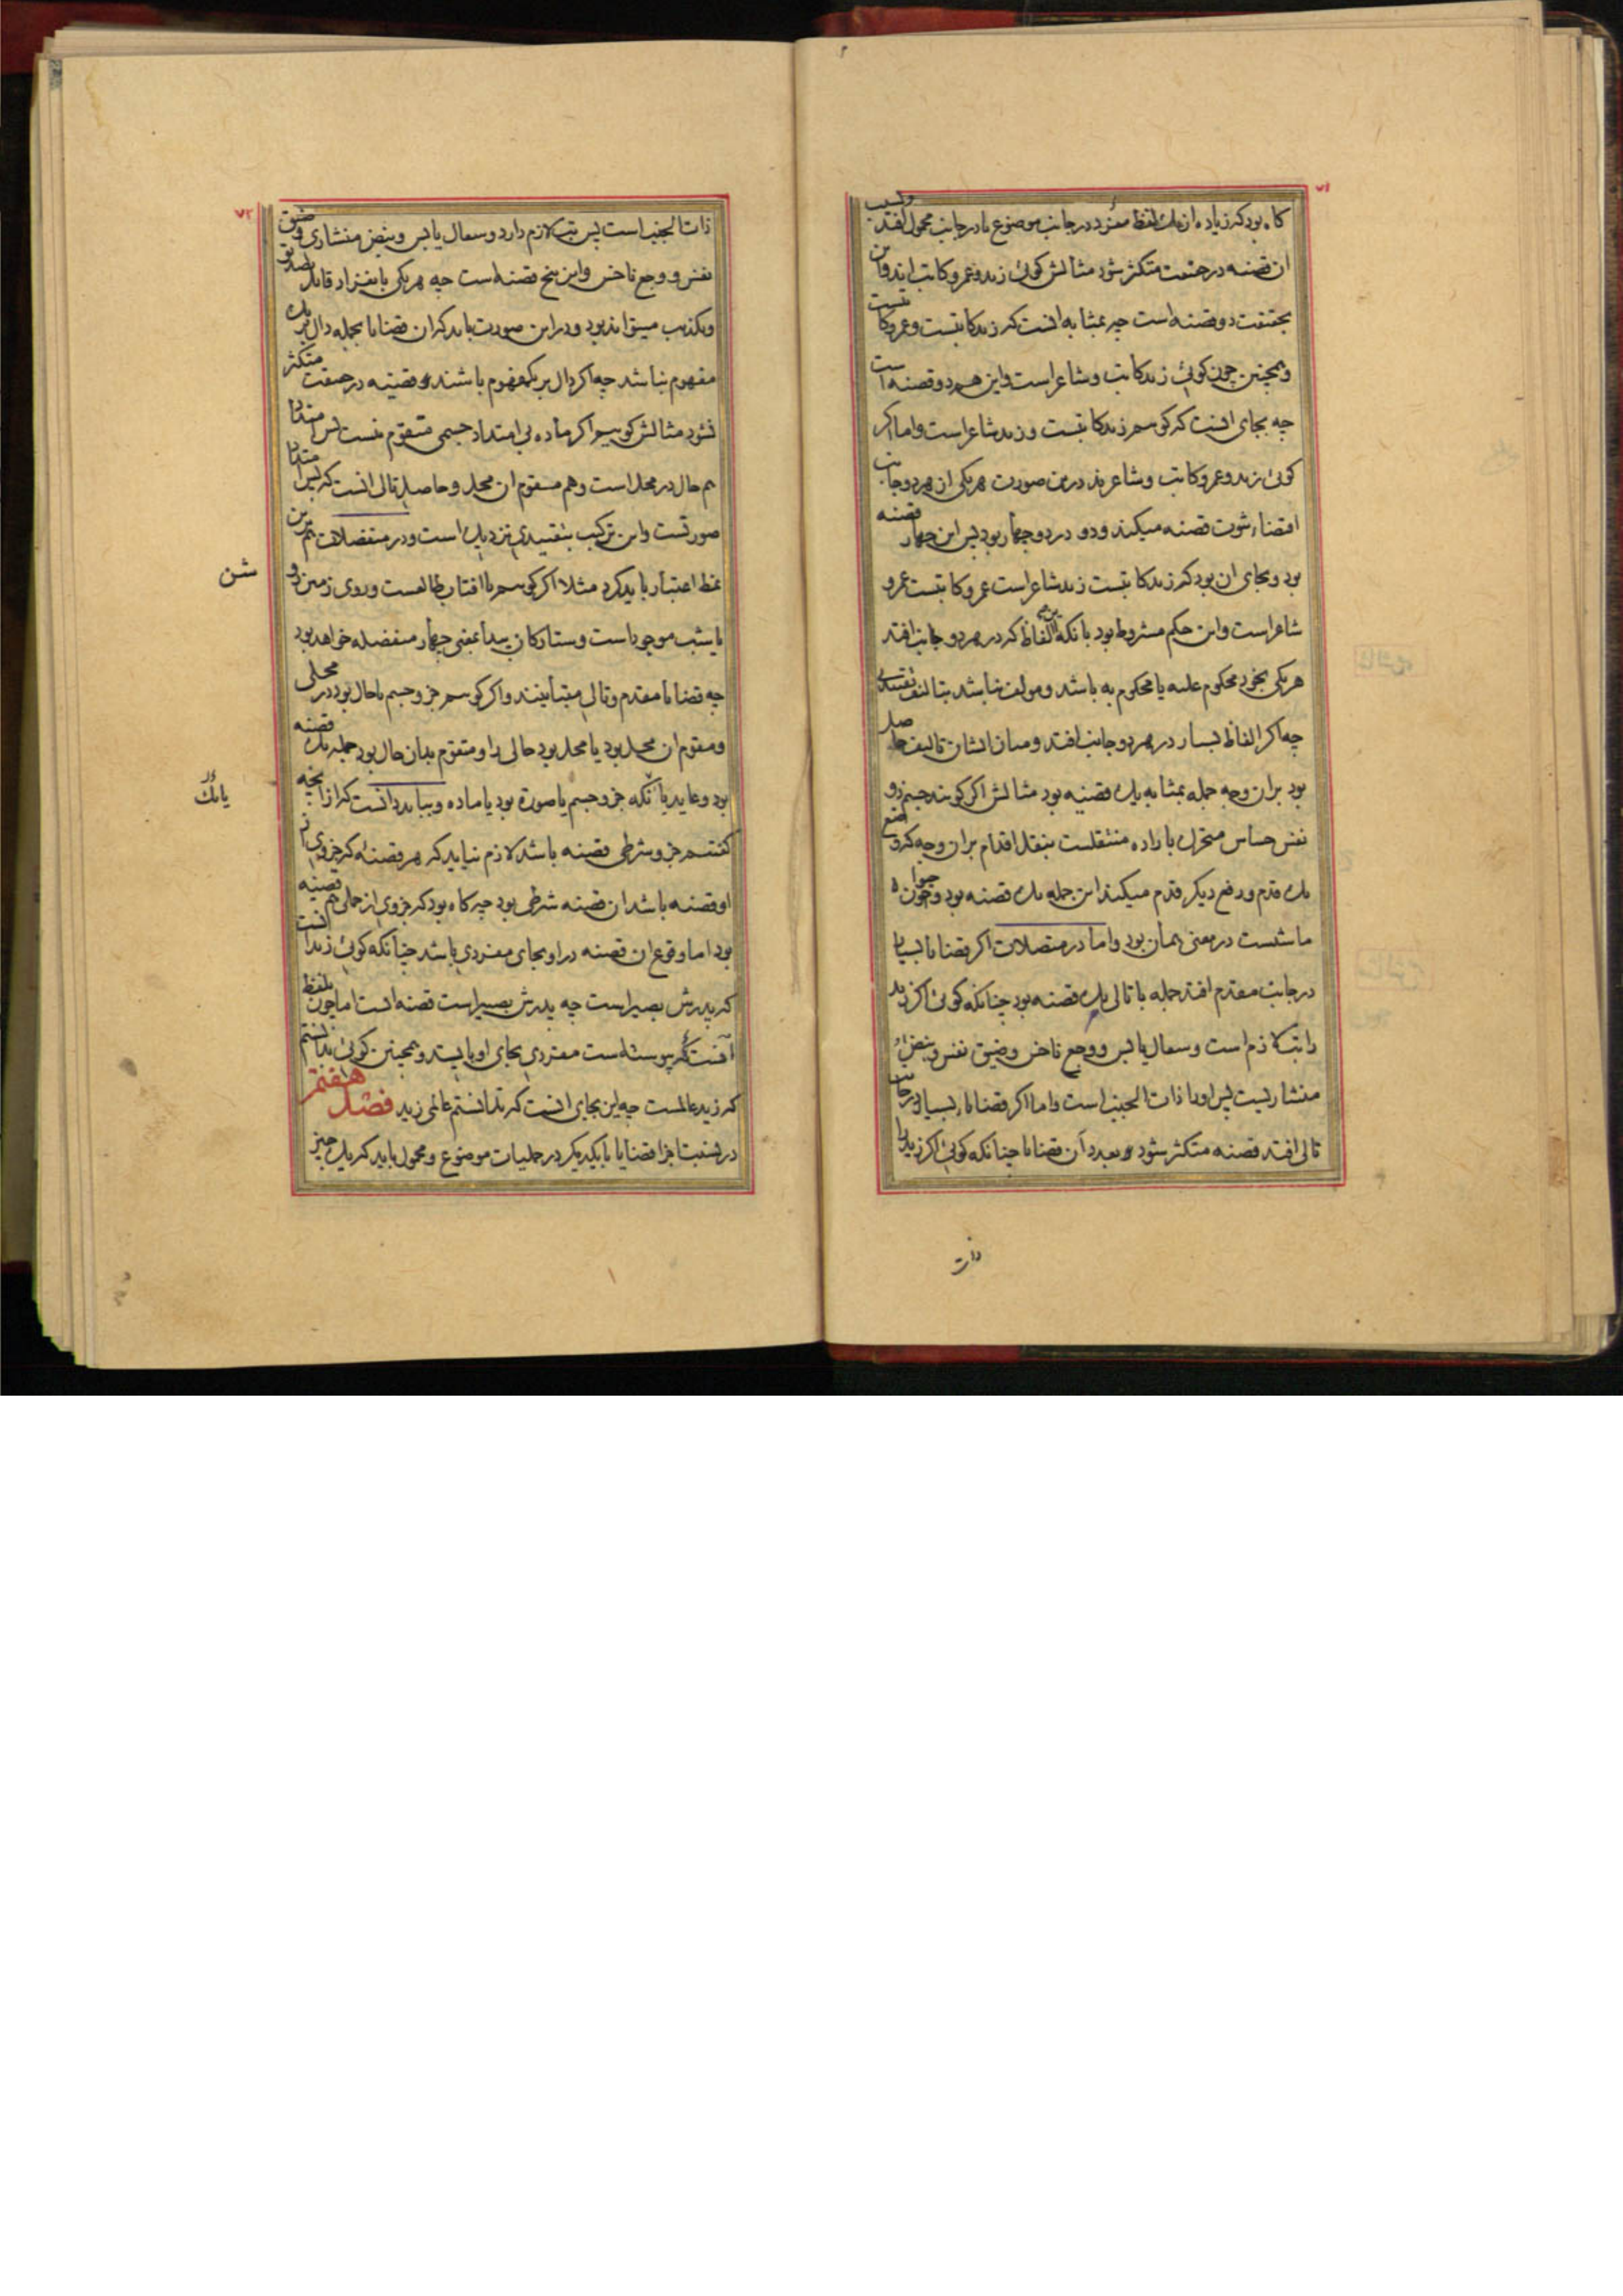 ۷۱
کاه بود که زیاده از یک لفظ مفرد در جانب موضوع یا در جانب محمول افتد و بسبب
ان قضیه در حقیقت متکثر شود مثالش کوئی زید و عمرو کاتب اند و این
بحقیقت دو قضیه است چه بمثابه انست که زید کاتبست و عمرو کاتبست
و همچنین چون کوئی زید کاتب و شاعر است و این هم دو قضیه است
چه بجای انست که کوییم زید کاتبست و زید شاعر است و اما اکر
کوئی زید و عمرو کاتب و شاعرند درین صورت هر یکی از هر دو جانب
اقتضاء ثبوت قضیه میکند و دو در دو چهار بود پس این چهار قضیه
بود و بجای ان بود که زید کاتبست زید شاعر است عمرو کاتبست عمرو
شاعر است و این حکم مشروط بود بانکه الفاظ که در هر دو جانب افتد
هر یکی بخود محکوم علیه یا محکوم به باشد و مولف نباشد بتالیف تقییدی
چه اکر الفاظ بسیار در هر دو جانب افتد و میان ایشان تالیف حاصل
بود بران وجه جمله بمثابه یک قضیه بود مثالش اکر کویند جسم ذو
نفس حساس متحرک باراده منتقلست بنقل اقدام بران وجه که وضع
یک قدم و رفع دیکر قدم میکند این جمله یک قضیه بود و چون حیوان
ماشیست در معنی همان بود و اما در متصلات اکر قضایا بسیار
در جانب مقدم افتد جمله با تالی یک قضیه بود چنانکه کوئی اکر زید
را تب لازم است و سعال یابس و وجع ناخس و ضیق نفس و نبض
منشاریست پس او را ذات الجنب است و اما اکر قضایاء بسیار در جانب
تالی افتد قضیه متکثر شود بعدد آن قضایا چنانکه کوئی اکر زید را
ذات
۷۲
ذات الجنب است پس تب لازم دارد و سعال یابس و نبض منشاری و ضیق
نفس و وجع ناخس و این پنج قضیه است چه هر یکی بانفراد قابل تصدیق
و تکذیب میتواند بود و در این صورت باید که ان قضایا بجمله دال بر یک
مفهوم نباشد چه اکر دال بر یک مفهوم باشند قضیه در حقیقت متکثر
نشود مثالش کوییم اکر ماده بی امتداد جسمی متقوم نیست پس امتداد
هم حال در محل است و هم مقوم ان محل و حاصل تالی انست که پس امتداد
صورتست و این ترکیب بتقییدی نزدیک است و در منفصلات هم برین
نمط اعتبار باید کرد مثلا اکر کوییم یا افتاب طالعست و روی زمین روشن
یا شب موجود است و ستارکان پیدا بمعنی چهار منفصله خواهد بود
چه قضایا مقدم و تالی متباینند و اکر کوییم جزو جسم یا حال بود در محلی
و مقوم ان محل بود یا محل بود حالی را و متقوم بدان حال بود جمله یک قضیه
بود و عاید با انکه جزو جسم یا صورة بود یا ماده و بباید دانست که از آنچه
یا بک
کفتیم جزو شرطی قضیه باشد لازم نیاید که هر قضیه که جزوی از
او قضیه باشد ان قضیه شرطی بود چه کاه بود که جزوی از حملی هم قضیه
بود اما وقوع ان قضیه در او بجای مفردی باشد چنانکه کوئی زید انست
که پدرش بصیر است چه پدرش بصیر است قضیه است اما چون بلفظ
آنست که پیوسته است مفردی بجای او بایستد و همچنین کوئی بدانستم
که زید عالمست چه این بجای انست که بدانستم عالمی زید فصل هفتم
در نسبت اجزاء قضایا با یکدیکر در حملیات موضوع و محمول باید که یک چیز